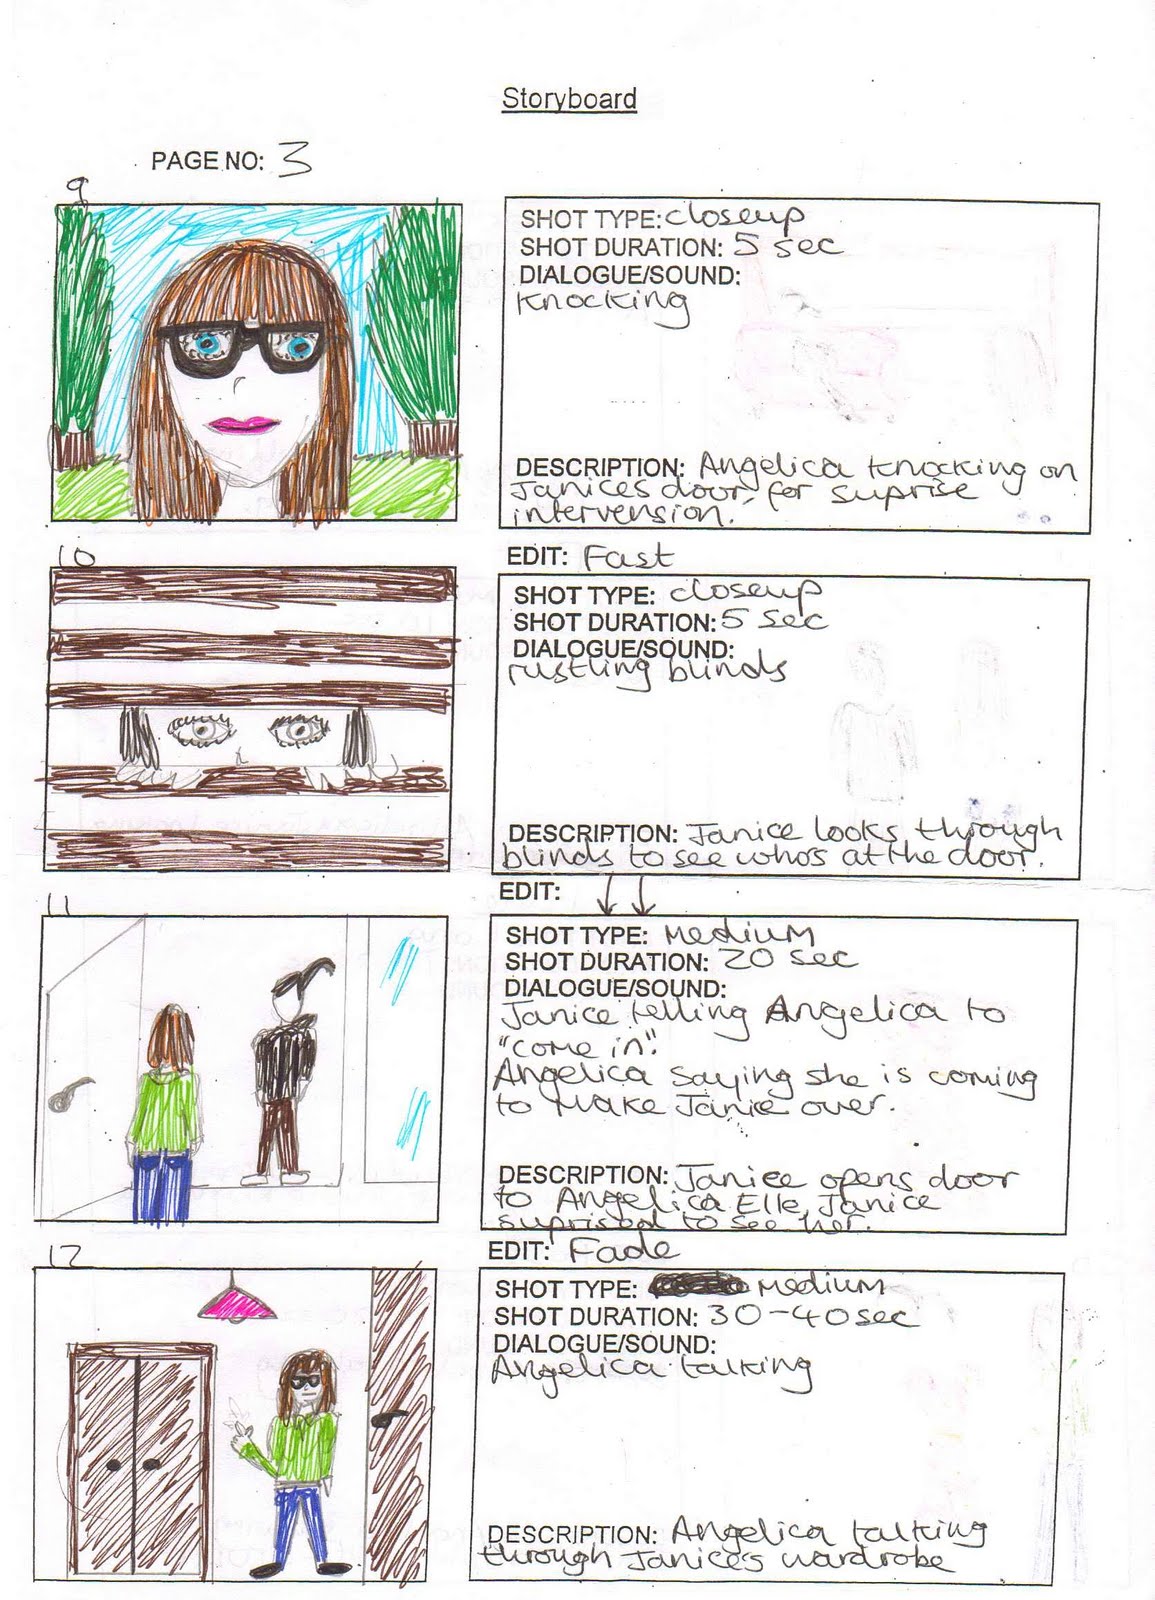 Storyboard
PAGE NO: 3
9
SHOT TYPE: closeup
SHOT DURATION: 5 sec
DIALOGUE/SOUND:
Knocking
DESCRIPTION: Angelica Knocking on
Janices door, for suprise
intervension.
EDIT: Fast
10
SHOT TYPE: closeup
SHOT DURATION: 5 sec
DIALOGUE/SOUND:
rustling blinds
DESCRIPTION: Janice looks through
blinds to see who's at the door.
EDIT: ↓ ↓
11
SHOT TYPE: Medium
SHOT DURATION: 20 sec
DIALOGUE/SOUND:
Janice telling Angelica to
"come in".
Angelica saying she is coming
to make Janice over.
DESCRIPTION: Janice opens door
to Angelica Elle, Janice
suprised to see her.
EDIT: Fade
12
SHOT TYPE: Medium
SHOT DURATION: 30-40sec
DIALOGUE/SOUND:
Angelica talking
DESCRIPTION: Angelica talking
through Janice's wardrobe